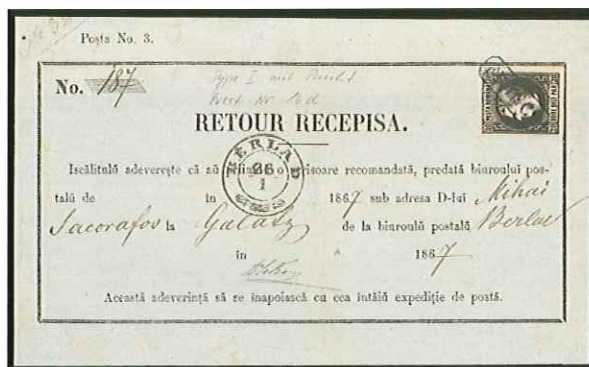 Poşta No. 3.
No. 187
Type I mit Punkt
RETOUR RECEPISA.
BERLAD
26
1
Iscălitulŭ adevereşte că aŭ primit o scrisoare recomandată, predată biuroului pos-
talŭ de în 1867 sub adresa D-lui Mihai
Sacorafos la Galatz de la biuroulŭ postală Berlad
în 1867
Această adeverinţă să se înapoiască cu cea întâiŭ expediţie de postă.